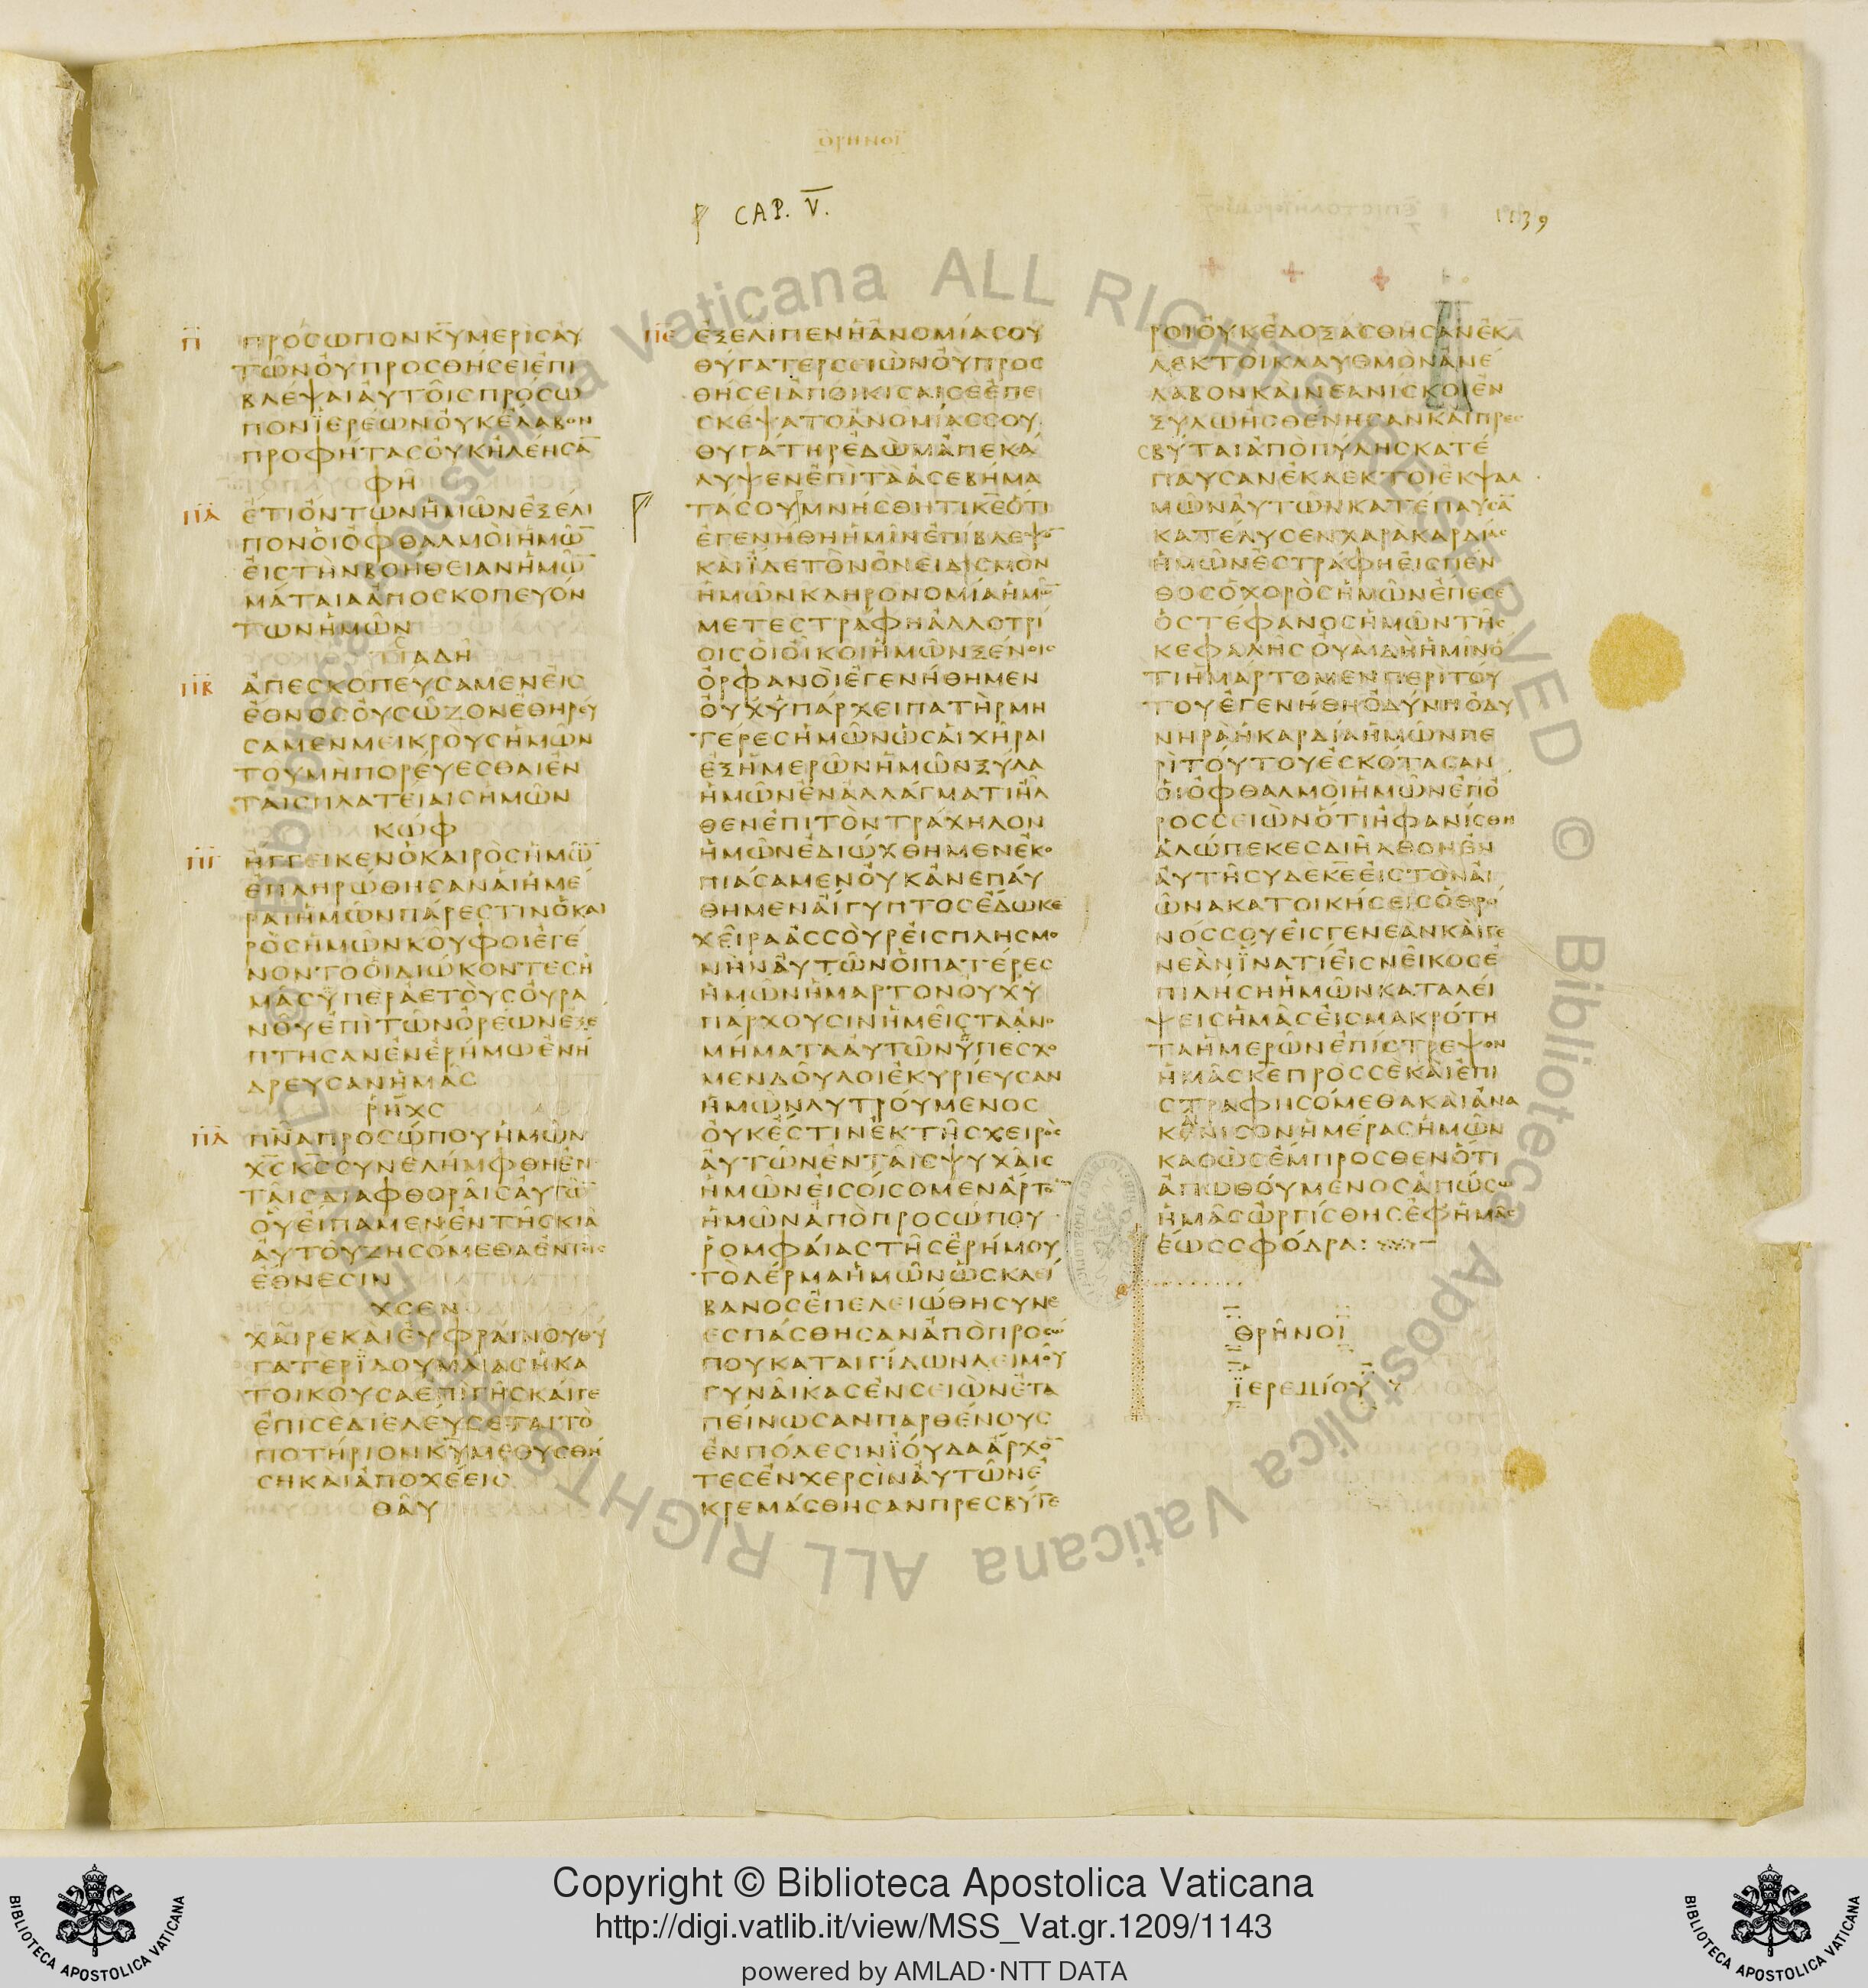 CAP. V.
1139
Π̅
ΠΡΟΣΩΠΟΝΚ̅Υ̅ΜΕΡΙΣΑΥ
ΤΩΝΟΥΠΡΟΣΘΗΣΕΙΕΠΙ
ΒΛΕΨΑΙΑΥΤΟΙΣΠΡΟΣΩ
ΠΟΝΪΕΡΕΩΝΟΥΚΕΛΑΒΟΝ
ΠΡΟΦΗΤΑΣΟΥΚΗΛΕΗΣΑ̅
ΦΗ
Π̅Α̅
ΕΤΙΟΝΤΩΝΗΜΩΝΕΞΕΛΙ
ΠΟΝΟΙΟΦΘΑΛΜΟΙΗΜΩ̅
ΕΙΣΤΗΝΒΟΗΘΕΙΑΝΗΜΩ̅
ΜΑΤΑΙΑΑΠΟΣΚΟΠΕΥΟΝ
ΤΩΝΗΜΩΝ
ΤΣΑΔΗ
Π̅Β̅
ΑΠΕΣΚΟΠΕΥΣΑΜΕΝΕΙΣ
ΕΘΝΟΣΟΥΣΩΖΟΝΕΘΗΡΕΥ
ΣΑΜΕΝΜΕΙΚΡΟΥΣΗΜΩΝ
ΤΟΥΜΗΠΟΡΕΥΕΣΘΑΙΕΝ
ΤΑΙΣΠΛΑΤΕΙΑΙΣΗΜΩΝ
ΚΩΦ
Π̅Γ̅
ΗΓΓΕΙΚΕΝΟΚΑΙΡΟΣΗΜΩ̅
ΕΠΛΗΡΩΘΗΣΑΝΑΙΗΜΕ
ΡΑΙΗΜΩΝΠΑΡΕΣΤΙΝΟΚΑΙ
ΡΟΣΗΜΩΝΚΟΥΦΟΙΕΓΕ
ΝΟΝΤΟΟΙΔΙΩΚΟΝΤΕΣΗ
ΜΑΣΫΠΕΡΑΕΤΟΥΣΟΥΡΑ
ΝΟΥΕΠΙΤΩΝΟΡΕΩΝΕΞΕ
ΠΤΗΣΑΝΕΝΕΡΗΜΩΕΝΗ
ΔΡΕΥΣΑΝΗΜΑΣ
ΡΗΧΣ
Π̅Δ̅
Π̅Ν̅Α̅ΠΡΟΣΩΠΟΥΗΜΩΝ
Χ̅Σ̅Κ̅Σ̅ΣΥΝΕΛΗΜΦΘΗΕΝ
ΤΑΙΣΔΙΑΦΘΟΡΑΙΣΑΥΤΩ̅
ΟΥΕΙΠΑΜΕΝΕΝΤΗΣΚΙΑ
ΑΥΤΟΥΖΗΣΟΜΕΘΑΕΝΤΟΙΣ
ΕΘΝΕΣΙΝ
ΧΣΕΝ
ΧΑΙΡΕΚΑΙΕΥΦΡΑΙΝΟΥΘΥ
ΓΑΤΕΡΪΔΟΥΜΑΙΑΣΗΚΑ
ΤΟΙΚΟΥΣΑΕΠΙΓΗΣΚΑΙΓΕ
ΕΠΙΣΕΔΙΕΛΕΥΣΕΤΑΙΤΟ
ΠΟΤΗΡΙΟΝΚ̅Υ̅ΜΕΘΥΣΘΗ
ΣΗΚΑΙΑΠΟΧΕΕΙΣ
ΘΑΥ
Π̅Ε̅
ΕΞΕΛΙΠΕΝΗΑΝΟΜΙΑΣΟΥ
ΘΥΓΑΤΕΡΣΕΙΩΝΟΥΠΡΟΣ
ΘΗΣΕΙΑΠΟΙΚΙΣΑΙΣΕΕΠΕ
ΣΚΕΨΑΤΟΑΝΟΜΙΑΣΣΟΥ
ΘΥΓΑΤΗΡΕΔΩΜΑΠΕΚΑ
ΛΥΨΕΝΕΠΙΤΑΑΣΕΒΗΜΑ
ΤΑΣΟΥΜΝΗΣΘΗΤΙΚ̅Ε̅ΟΤΙ
ΕΓΕΝΗΘΗΗΜΙΝΕΠΙΒΛΕΨΟ̅
ΚΑΙΪΔΕΤΟΝΟΝΕΙΔΙΣΜΟΝ
ΗΜΩΝΚΛΗΡΟΝΟΜΙΑΗΜΩ̅
ΜΕΤΕΣΤΡΑΦΗΑΛΛΟΤΡΙ
ΟΙΣΟΙΟΙΚΟΙΗΜΩΝΞΕΝΟΙΣ
ΟΡΦΑΝΟΙΕΓΕΝΗΘΗΜΕΝ
ΟΥΧΥΠΑΡΧΕΙΠΑΤΗΡΜΗ
ΤΕΡΕΣΗΜΩΝΩΣΑΙΧΗΡΑΙ
ΕΞΗΜΕΡΩΝΗΜΩΝΞΥΛΑ
ΗΜΩΝΕΝΑΛΛΑΓΜΑΤΙΗΛ
ΘΕΝΕΠΙΤΟΝΤΡΑΧΗΛΟΝ
ΗΜΩΝΕΔΙΩΧΘΗΜΕΝΕΚΟ
ΠΙΑΣΑΜΕΝΟΥΚΑΝΕΠΑΥ
ΘΗΜΕΝΑΙΓΥΠΤΟΣΕΔΩΚΕ
ΧΕΙΡΑΑΣΣΟΥΡΕΙΣΠΛΗΣΜΟ
ΝΗΝΑΥΤΩΝΟΙΠΑΤΕΡΕΣ
ΗΜΩΝΗΜΑΡΤΟΝΟΥΧΥ
ΠΑΡΧΟΥΣΙΝΗΜΕΙΣΤΑΑΝΟ
ΜΗΜΑΤΑΑΥΤΩΝΫΠΕΣΧΟ
ΜΕΝΔΟΥΛΟΙΕΚΥΡΙΕΥΣΑΝ
ΗΜΩΝΛΥΤΡΟΥΜΕΝΟΣ
ΟΥΚΕΣΤΙΝΕΚΤΗΣΧΕΙΡΟΣ
ΑΥΤΩΝΕΝΤΑΙΣΨΥΧΑΙΣ
ΗΜΩΝΕΙΣΟΙΣΟΜΕΝΑΡΤΟ̅
ΗΜΩΝΑΠΟΠΡΟΣΩΠΟΥ
ΡΟΜΦΑΙΑΣΤΗΣΕΡΗΜΟΥ
ΤΟΔΕΡΜΑΗΜΩΝΩΣΚΛΕΙ
ΒΑΝΟΣΕΠΕΛΕΙΩΘΗΣΥΝΕ
ΕΣΠΑΣΘΗΣΑΝΑΠΟΠΡΟΣΩ
ΠΟΥΚΑΤΑΙΓΙΔΩΝΛΕΙΜΟΥ
ΓΥΝΑΙΚΑΣΕΝΣΕΙΩΝΕΤΑ
ΠΕΙΝΩΣΑΝΠΑΡΘΕΝΟΥΣ
ΕΝΠΟΛΕΣΙΝΪΟΥΔΑΑΡΧΟ̅
ΤΕΣΕΝΧΕΡΣΙΝΑΥΤΩΝΕ
ΚΡΕΜΑΣΘΗΣΑΝΠΡΕΣΒΥΤΕ
ΡΟΙΟΥΚΕΔΟΞΑΣΘΗΣΑΝΕΚ
ΛΕΚΤΟΙΚΛΑΥΘΜΟΝΑΝΕ
ΛΑΒΟΝΚΑΙΝΕΑΝΙΣΚΟΙΕΝ
ΞΥΛΩΗΣΘΕΝΗΣΑΝΚΑΙΠΡΕΣ
ΒΥΤΑΙΑΠΟΠΥΛΗΣΚΑΤΕ
ΠΑΥΣΑΝΕΚΛΕΚΤΟΙΕΚΨΑΛ
ΜΩΝΑΥΤΩΝΚΑΤΕΠΑΥΣΑ̅
ΚΑΤΕΛΥΣΕΝΧΑΡΑΚΑΡΔΙΑΣ
ΗΜΩΝΕΣΤΡΑΦΗΕΙΣΠΕΝ
ΘΟΣΟΧΟΡΟΣΗΜΩΝΕΠΕΣΕ
ΟΣΤΕΦΑΝΟΣΗΜΩΝΤΗΣ
ΚΕΦΑΛΗΣΟΥΑΙΔΗΗΜΙΝΟ
ΤΙΗΜΑΡΤΟΜΕΝΠΕΡΙΤΟΥ
ΤΟΥΕΓΕΝΗΘΗΟΔΥΝΗΟΔΥ
ΝΗΡΑΗΚΑΡΔΙΑΗΜΩΝΠΕ
ΡΙΤΟΥΤΟΥΕΣΚΟΤΑΣΑΝ
ΟΙΟΦΘΑΛΜΟΙΗΜΩΝΕΠΟ
ΡΟΣΣΕΙΩΝΟΤΙΗΦΑΝΙΣΘΗ
ΑΛΩΠΕΚΕΣΔΙΗΛΘΟΝΕΝ
ΑΥΤΗΣΥΔΕΚ̅Ε̅ΕΙΣΤΟΝΑΙ
ΩΝΑΚΑΤΟΙΚΗΣΕΙΣΟΘΡΟ
ΝΟΣΣΟΥΕΙΣΓΕΝΕΑΝΚΑΙΓΕ
ΝΕΑΝΪΝΑΤΙΕΙΣΝΕΙΚΟΣΕ
ΠΙΛΗΣΗΗΜΩΝΚΑΤΑΛΕΙ
ΨΕΙΣΗΜΑΣΕΙΣΜΑΚΡΟΤΗ
ΤΑΗΜΕΡΩΝΕΠΙΣΤΡΕΨΟΝ
ΗΜΑΣΚ̅Ε̅ΠΡΟΣΣΕΚΑΙΕΠΙ
ΣΤΡΑΦΗΣΟΜΕΘΑΚΑΙΑΝΑ
ΚΑΙΝΙΣΟΝΗΜΕΡΑΣΗΜΩΝ
ΚΑΘΩΣΕΜΠΡΟΣΘΕΝΟΤΙ
ΑΠΩΘΟΥΜΕΝΟΣΑΠΩΣΩ
ΗΜΑΣΩΡΓΙΣΘΗΣΕΦΗΜΑΣ
ΕΩΣΣΦΟΔΡΑ:
ΘΡΗΝΟΙ
ΪΕΡΕΜΙΟΥ
Copyright © Biblioteca Apostolica Vaticana
http://digi.vatlib.it/view/MSS_Vat.gr.1209/1143
powered by AMLAD·NTT DATA
BIBLIOTECA APOSTOLICA VATICANA
BIBLIOTECA APOSTOLICA VATICANA